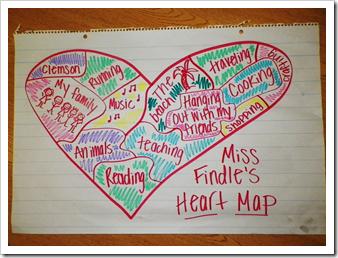 Clemson
Running
My family
Music
The
beach
traveling!
butterfly
Cooking
Hanging
out with my
friends
shopping
Animals
teaching
Reading
Miss
Findle's
Heart Map